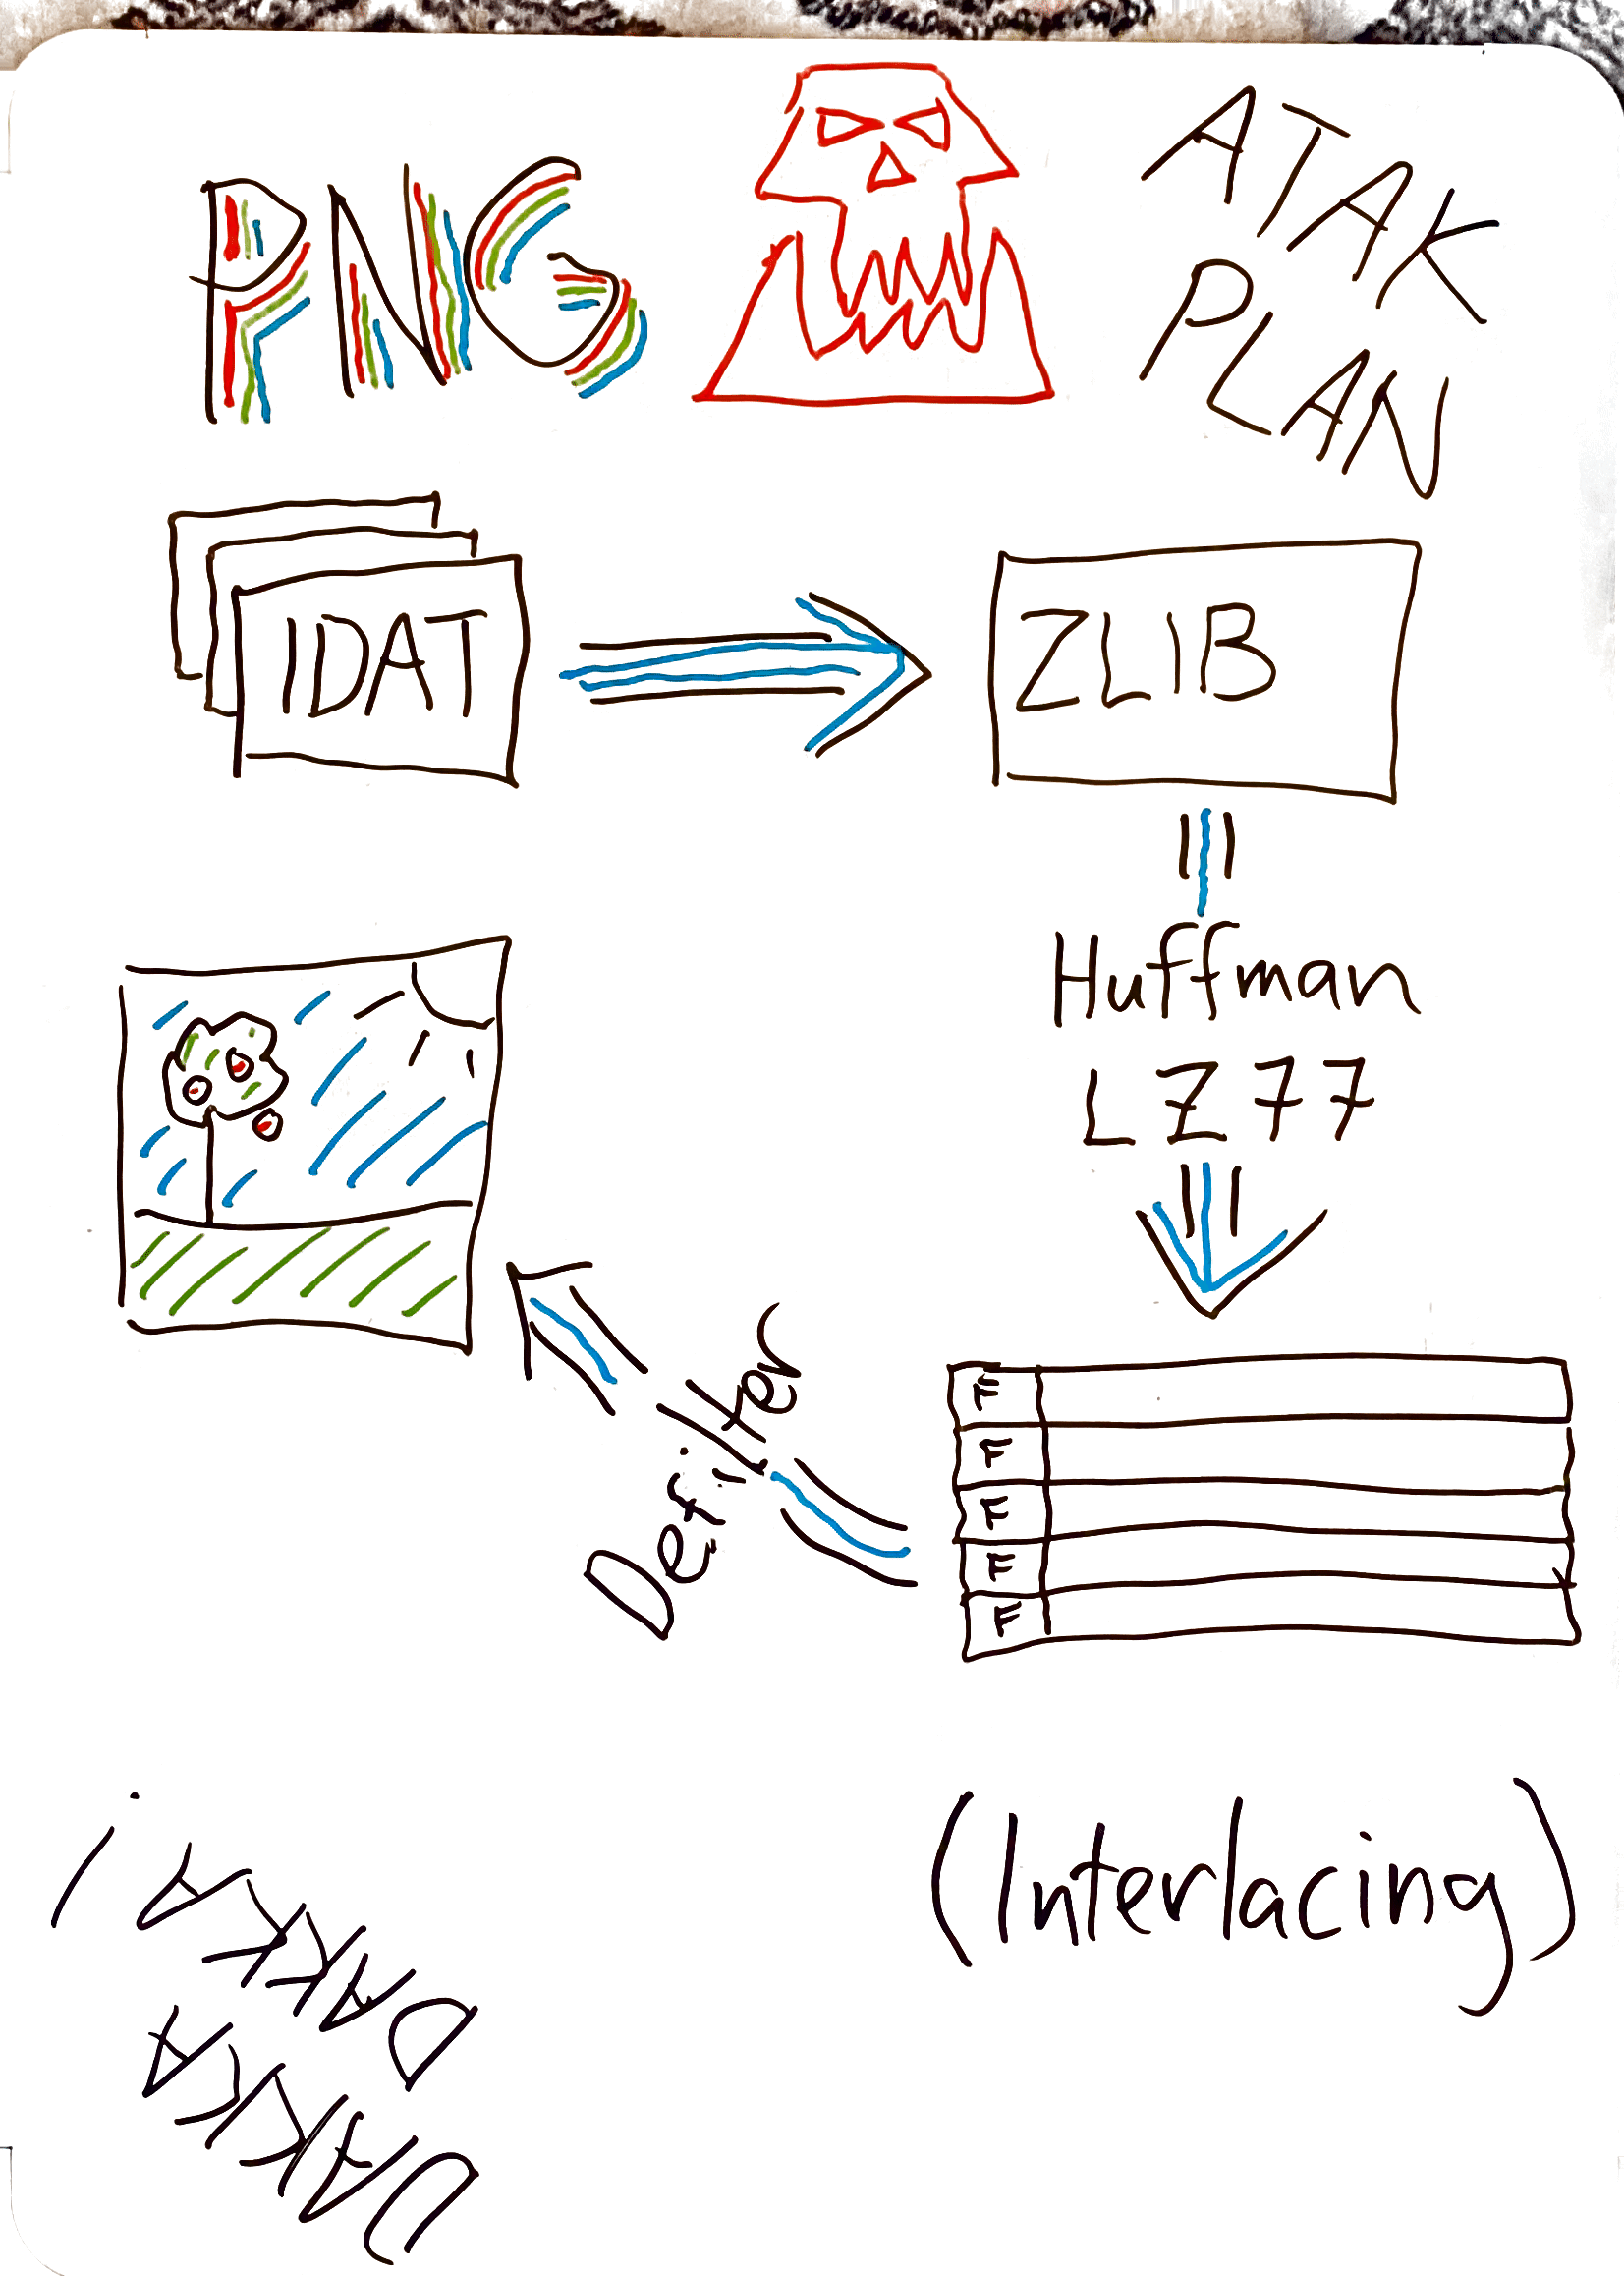 PNG
ATAK
PLAN
IDAT
ZLIB
Huffman
LZ77
F
F
F
F
F
Defilter
(Interlacing)
DAKKA
DAKKA!